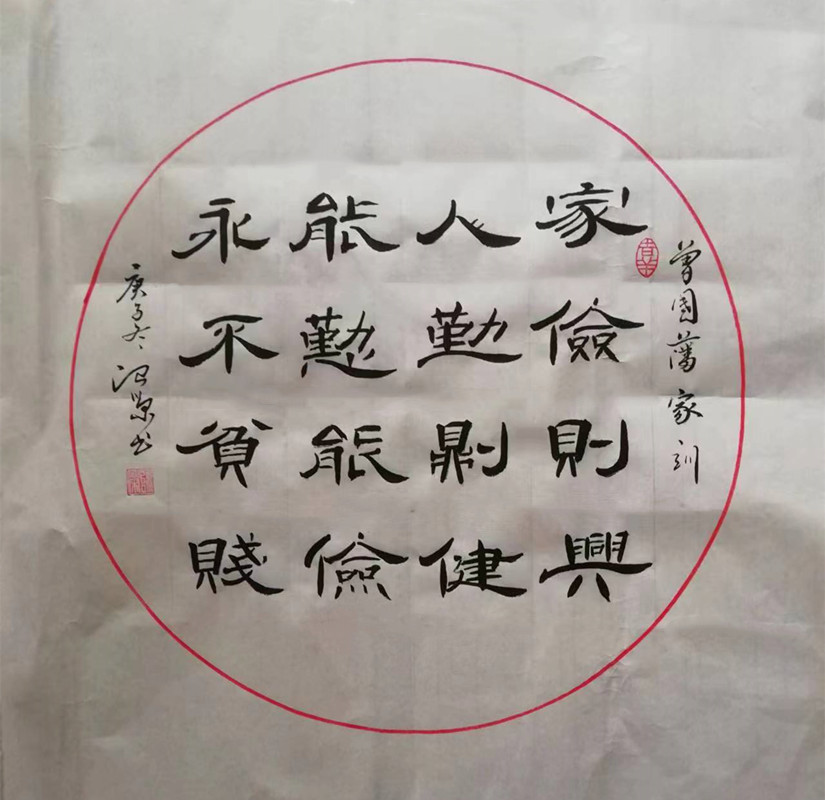 曾國藩家训
家儉則興
人勤則健
能勤能儉
永不貧賤
庚子冬书